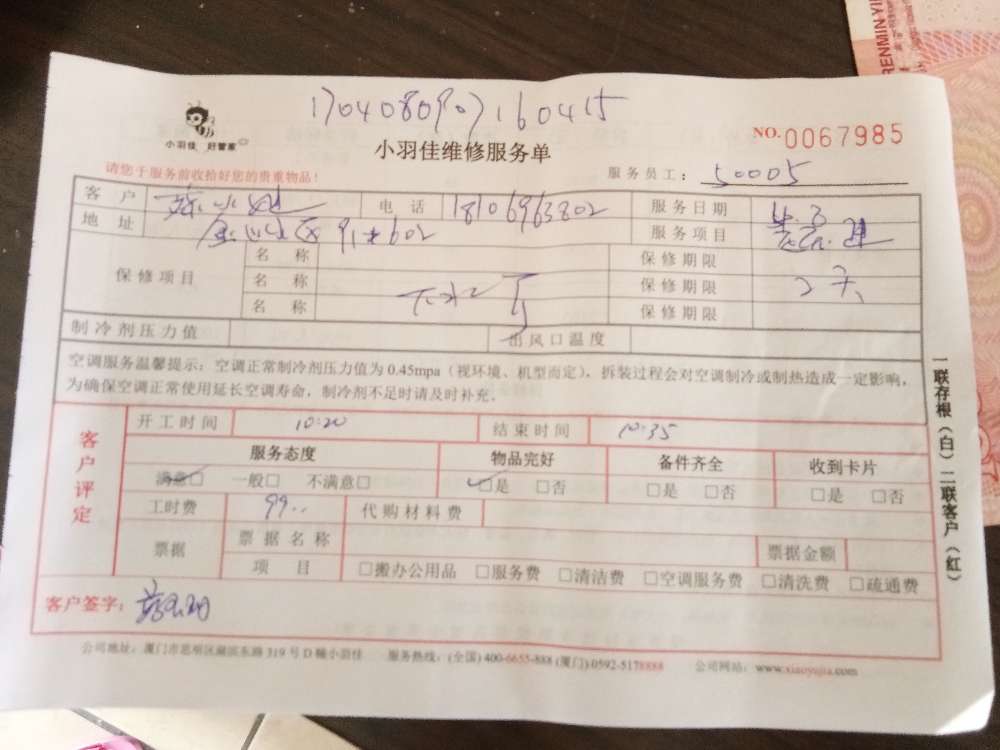 RENMIN YIN
1704080907160415
小羽佳 好管家
NO.0067985
小羽佳维修服务单
请您于服务前收拾好您的贵重物品！
服务员工： 50005
客户 电话 18106963802 服务日期
地址 602 服务项目
保修项目 名称 保修期限
名称 下水 保修期限 2天
名称 保修期限
制冷剂压力值 出风口温度
空调服务温馨提示：空调正常制冷剂压力值为 0.45mpa（视环境、机型而定），拆装过程会对空调制冷或制热造成一定影响，
为确保空调正常使用延长空调寿命，制冷剂不足时请及时补充。
客户评定
开工时间 10:20 结束时间 10:35
服务态度 物品完好 备件齐全 收到卡片
满意□ 一般□ 不满意□ □是 □否 □是 □否 □是 □否
工时费 99 代购材料费
票据 票据名称 票据金额
项目 □搬办公用品 □服务费 □清洁费 □空调服务费 □清洗费 □疏通费
客户签字：
公司地址：厦门市思明区湖滨东路 319 号 D 幢小羽佳 服务热线：(全国) 400-6655-888 (厦门) 0592-5178888 公司网站：www.xiaoyujia.com
一联存根（白）二联客户（红）